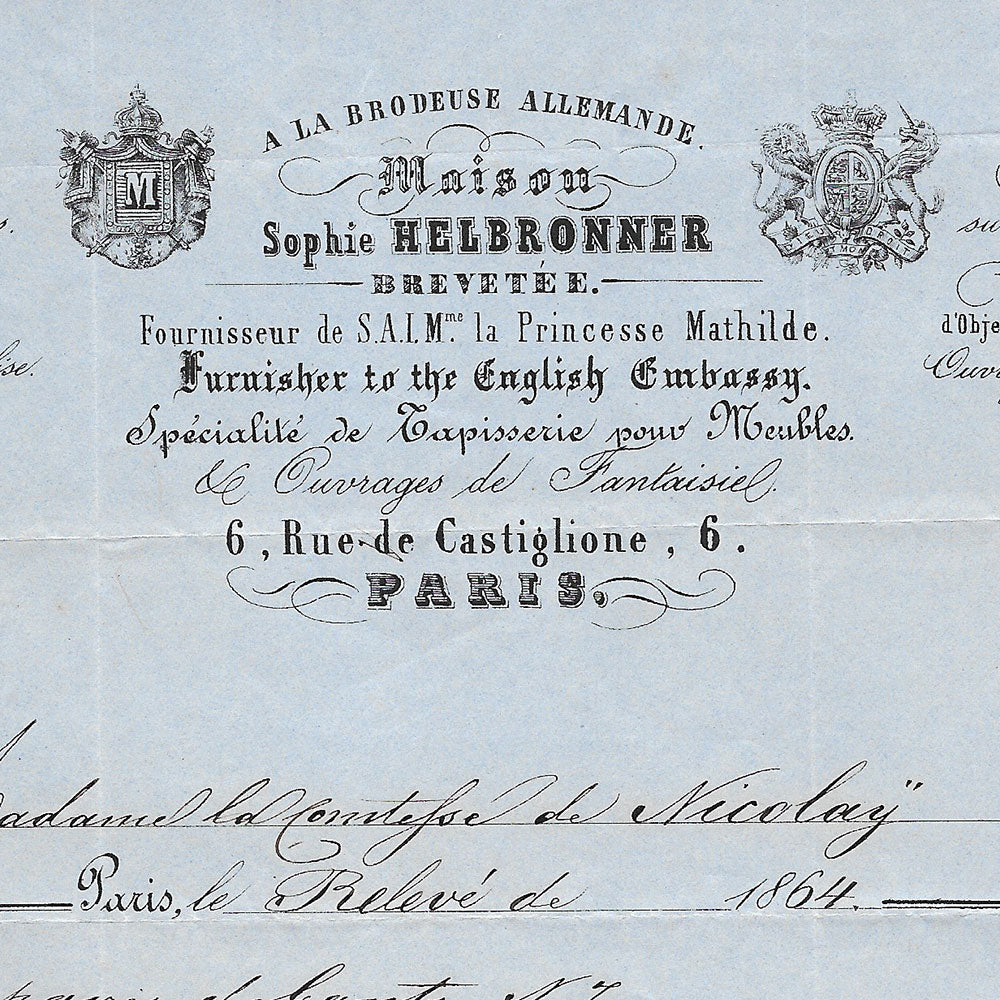 A LA BRODEUSE ALLEMANDE.
Maison
M
Sophie HELBRONNER
BREVETÉE.
Fournisseur de S.A.I. Mme. la Princesse Mathilde.
d'Obje
Furnisher to the English Embassy.
Spécialité de Tapisserie pour Meubles.
& Ouvrages de Fantaisie.
6, Rue de Castiglione, 6.
PARIS.
adame la Comtesse de Nicolaÿ
Paris, le Relevé de 1864.